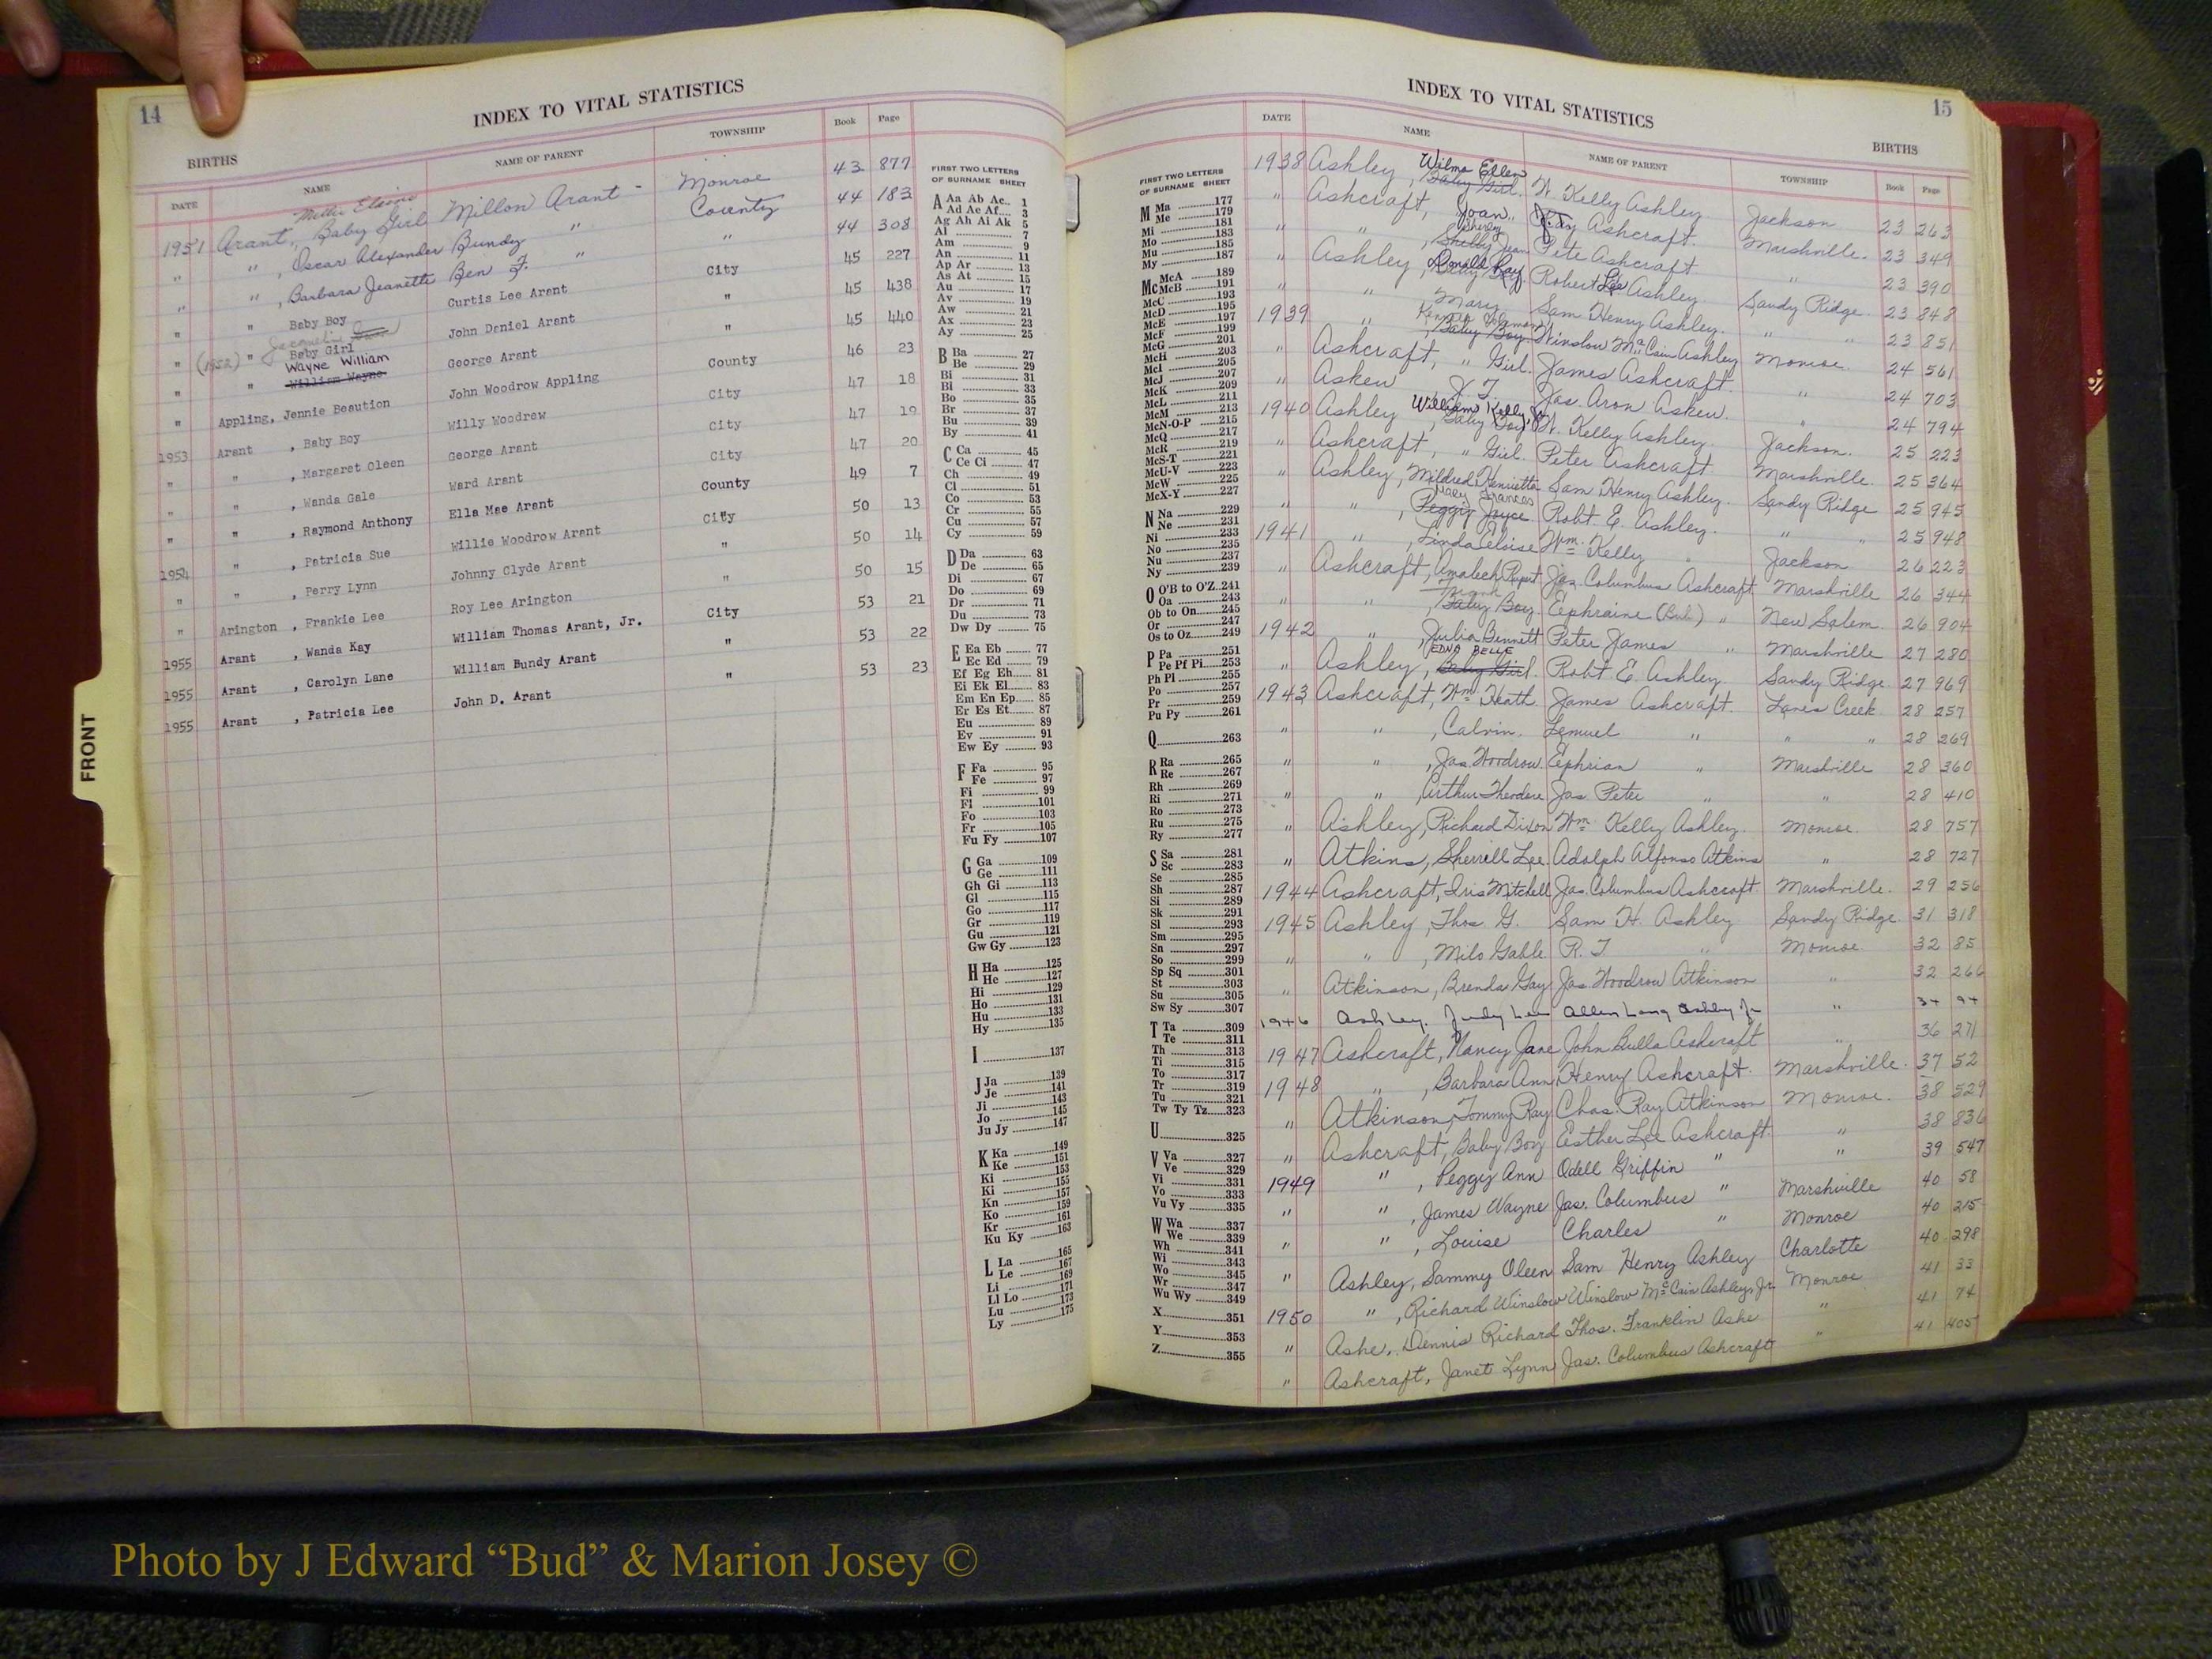 14
INDEX TO VITAL STATISTICS
BIRTHS
DATE NAME NAME OF PARENT TOWNSHIP Book Page
Nettie Elaine
1951 Arant, Baby Girl Millon Arant Monroe 43 877
" " , Oscar Alexander Bundy " County 44 183
" " , Barbara Jeanette Ben F. " " 44 308
" " Baby Boy Curtis Lee Arant City 45 227
" (1952) " Baby Girl John Daniel Arant " 45 438
Wayne William
" " William Wayne George Arant " 45 440
" Appling, Jennie Beaution John Woodrow Appling County 46 23
1953 Arant , Baby Boy Willy Woodrew City 47 18
" " , Margaret Oleen George Arant City 47 19
" " , Wanda Gale Ward Arant City 47 20
" " , Raymond Anthony Ella Mae Arant County 49 7
1954 " , Patricia Sue Willie Woodrow Arant City 50 13
" " , Perry Lynn Johnny Clyde Arant " 50 14
" Arington , Frankie Lee Roy Lee Arington " 50 15
1955 Arant , Wanda Kay William Thomas Arant, Jr. City 53 21
1955 Arant , Carolyn Lane William Bundy Arant " 53 22
1955 Arant , Patricia Lee John D. Arant " 53 23
FRONT
FIRST TWO LETTERS
OF SURNAME SHEET
A Aa Ab Ac.. 1
Ad Ae Af.... 3
Ag Ah Ai Ak 5
Al 7
Am 9
An 11
Ap Ar 13
As At 15
Au 17
Av 19
Aw 21
Ax 23
Ay 25
B Ba 27
Be 29
Bi 31
Bl 33
Bo 35
Br 37
Bu 39
By 41
C Ca 45
Ce Ci 47
Ch 49
Cl 51
Co 53
Cr 55
Cu 57
Cy 59
D Da 63
De 65
Di 67
Do 69
Dr 71
Du 73
Dw Dy 75
E Ea Eb 77
Ec Ed 79
Ef Eg Eh 81
Ei Ek El 83
Em En Ep 85
Er Es Et 87
Eu 89
Ev 91
Ew Ey 93
F Fa 95
Fe 97
Fi 99
Fl 101
Fo 103
Fr 105
Fu Fy 107
G Ga 109
Ge 111
Gh Gi 113
Gl 115
Go 117
Gr 119
Gu 121
Gw Gy 123
H Ha 125
He 127
Hi 129
Ho 131
Hu 133
Hy 135
I 137
J Ja 139
Je 141
Ji 143
Jo 145
Ju Jy 147
K Ka 149
Ke 151
Ki 153
Ki 155
Kn 157
Ko 159
Kr 161
Ku Ky 163
L La 165
Le 167
Li 169
Ll Lo 171
Lu 173
Ly 175
15
INDEX TO VITAL STATISTICS
BIRTHS
FIRST TWO LETTERS
OF SURNAME SHEET
M Ma 177
Me 179
Mi 181
Mo 183
Mu 185
My 187
Mc McA 189
McB 191
McC 193
McD 195
McE 197
McF 199
McG 201
McH 203
McI 205
McJ 207
McK 209
McL 211
McM 213
McN-O-P 215
McQ 217
McR 219
McS-T 221
McU-V 223
McW 225
McX-Y 227
N Na 229
Ne 231
Ni 233
No 235
Nu 237
Ny 239
O O'B to O'Z 241
Oa 243
Ob to On 245
Or 247
Os to Oz 249
P Pa 251
Pe Pf Pi 253
Ph Pl 255
Po 257
Pr 259
Pu Py 261
Q 263
R Ra 265
Re 267
Rh 269
Ri 271
Ro 273
Ru 275
Ry 277
S Sa 281
Sc 283
Se 285
Sh 287
Si 289
Sk 291
Sl 293
Sm 295
Sn 297
So 299
Sp Sq 301
St 303
Su 305
Sw Sy 307
T Ta 309
Te 311
Th 313
Ti 315
To 317
Tr 319
Tu 321
Tw Ty Tz 323
U 325
V Va 327
Ve 329
Vi 331
Vo 333
Vu Vy 335
W Wa 337
We 339
Wh 341
Wi 343
Wo 345
Wr 347
Wu Wy 349
X 351
Y 353
Z 355
DATE NAME NAME OF PARENT TOWNSHIP Book Page
Wilma Ellen
1938 Ashley, Baby Girl. W. Kelly Ashley Jackson 23 263
" Ashcraft, Joan Ashcraft. Marshville. 23 349
" " , Shelby Jean Pete Ashcraft " 23 390
" Ashley, Donald Ray Robert Lee Ashley Sandy Ridge 23 848
" " Mary Sam Henry Ashley. " " 23 851
1939 " , Baby Boy. Winslow McCain Ashley Monroe 24 561
" Ashcraft, " Girl. James Ashcraft. " 24 703
" Askew J. T. Jas. Aron Askew " 24 794
William Kelly, Jr
1940 Ashley, Baby Boy W. Kelly Ashley. Jackson. 25 223
" Ashcraft, " Girl. Peter Ashcraft Marshville. 25 364
" Ashley, Mildred Henrietta Sam Henry Ashley. Sandy Ridge 25 945
Mary Frances
" " , Peggy Joyce Robt. E. Ashley. " " 25 948
1941 " , Linda Eloise Wm. Kelly " Jackson 26 223
" Ashcraft, Amalech Rupert Jas. Columbus Ashcraft Marshville 26 344
Frank
" " , Baby Boy Ephraine (Bud.) " New Salem. 26 904
1942 " , Julia Bennett Peter James " Marshville 27 280
EDNA BELLE
" Ashley, Baby Girl. Robt. E. Ashley Sandy Ridge. 27 969
1943 Ashcraft, Wm. Heath. James Ashcraft. Lanes Creek 28 257
" " , Calvin. Lemuel " " " 28 269
" " , Jas. Woodrow. Ephrian " Marshville 28 360
" " , Arthur Theodore Jas. Peter " " 28 410
" Ashley, Richard Dixon Wm. Kelly Ashley. Monroe. 28 757
" Atkins, Sherrill Lee. Adolph Alfonso Atkins " 28 727
1944 Ashcraft, Iris Mitchell Jas. Columbus Ashcraft Marshville. 29 256
1945 Ashley, Thos. G. Sam H. Ashley Sandy Ridge. 31 318
" " , Milo Gable R. T " Monroe 32 85
" Atkinson, Brenda Gay Jas. Woodrow Atkinson " 32 266
1946 Ashley, Judy Lee Allen Long Ashley Jr " 34 94
1947 Ashcraft, Nancy Jane John Bulla Ashcraft " 36 271
1948 " , Barbara Ann Henry Ashcraft. Marshville. 37 52
" Atkinson, Tommy Ray Chas. Ray Atkinson Monroe. 38 529
" Ashcraft, Baby Boy Esther Lee Ashcraft. " 38 836
1949 " , Peggy Ann Odell Griffin " " 39 547
" " , James Wayne Jas. Columbus " Marshville 40 58
" " , Louise Charles " Monroe 40 215
" Ashley, Sammy Oleen Sam Henry Ashley Charlotte 40 298
1950 " , Richard Winslow Winslow McCain Ashley, Jr. Monroe 41 33
" Ashe, Dennis Richard Thos. Franklin Ashe " 41 74
" Ashcraft, Janet Lynn Jas. Columbus Ashcraft " 41 405
Photo by J Edward “Bud” & Marion Josey ©